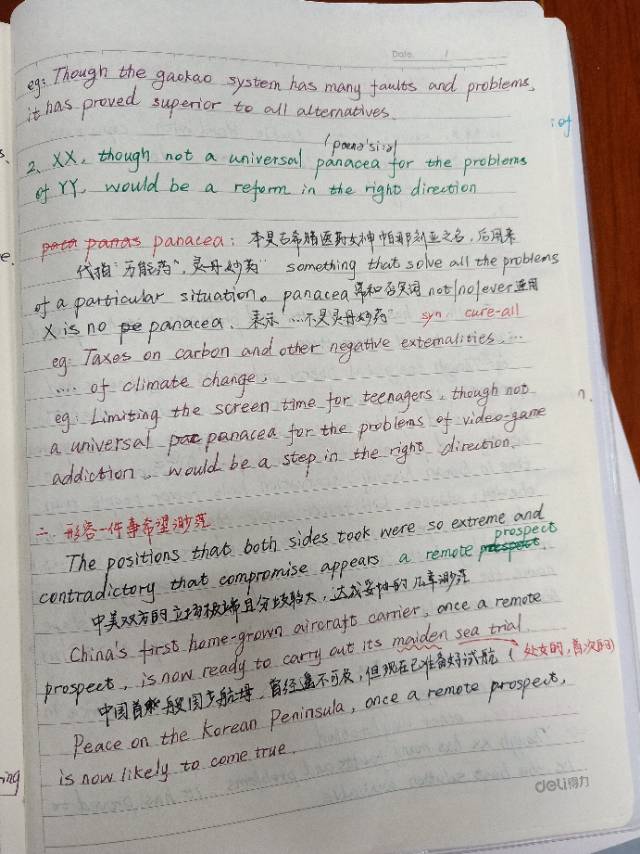 Date. /
eg: Though the gaokao system has many faults and problems,
it has proved superior to all alternatives.
:of
2. XX, though not a universal panacea for the problems
of YY, would be a reform in the right direction
panacea: 本是古希腊医药女神帕那刻亚之名,后用来
代指"万能药",灵丹妙药" something that solve all the problems
of a particular situation。panacea 常和否定词 not/no/ever 连用
X is no panacea. 表示"…不是灵丹妙药" syn. cure-all
eg: Taxes on carbon and other negative externalities, ...
.... of climate change.
eg: Limiting the screen time for teenagers, though not
a universal panacea for the problems of video-game
addiction, would be a step in the right direction.
二. 形容一件事希望渺茫
The positions that both sides took were so extreme and
prospect
contradictory that compromise appears a remote prospect.
中美双方的立场极端且分歧较大,达成妥协的几率渺茫
China's first home-grown aircraft carrier, once a remote
prospect, is now ready to carry out its maiden sea trial (处女的,首次的)
中国首艘国产航母,曾经遥不可及,但现在已准备好试航
Peace on the Korean Peninsula, once a remote prospect,
is now likely to come true.
ing
deli得力